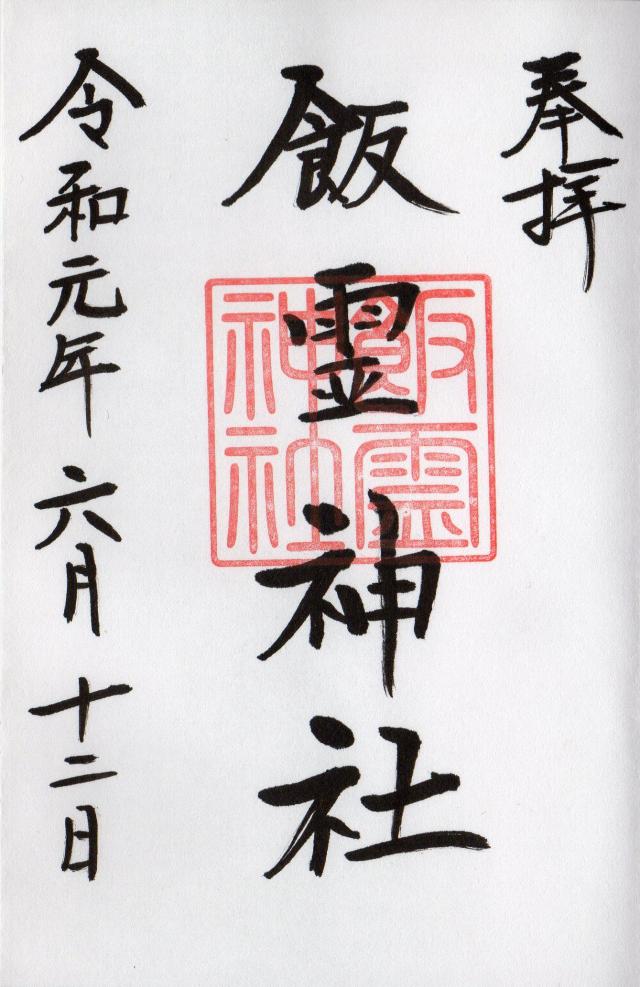 奉拝
飯霊神社
飯霊神社
令和元年六月十二日